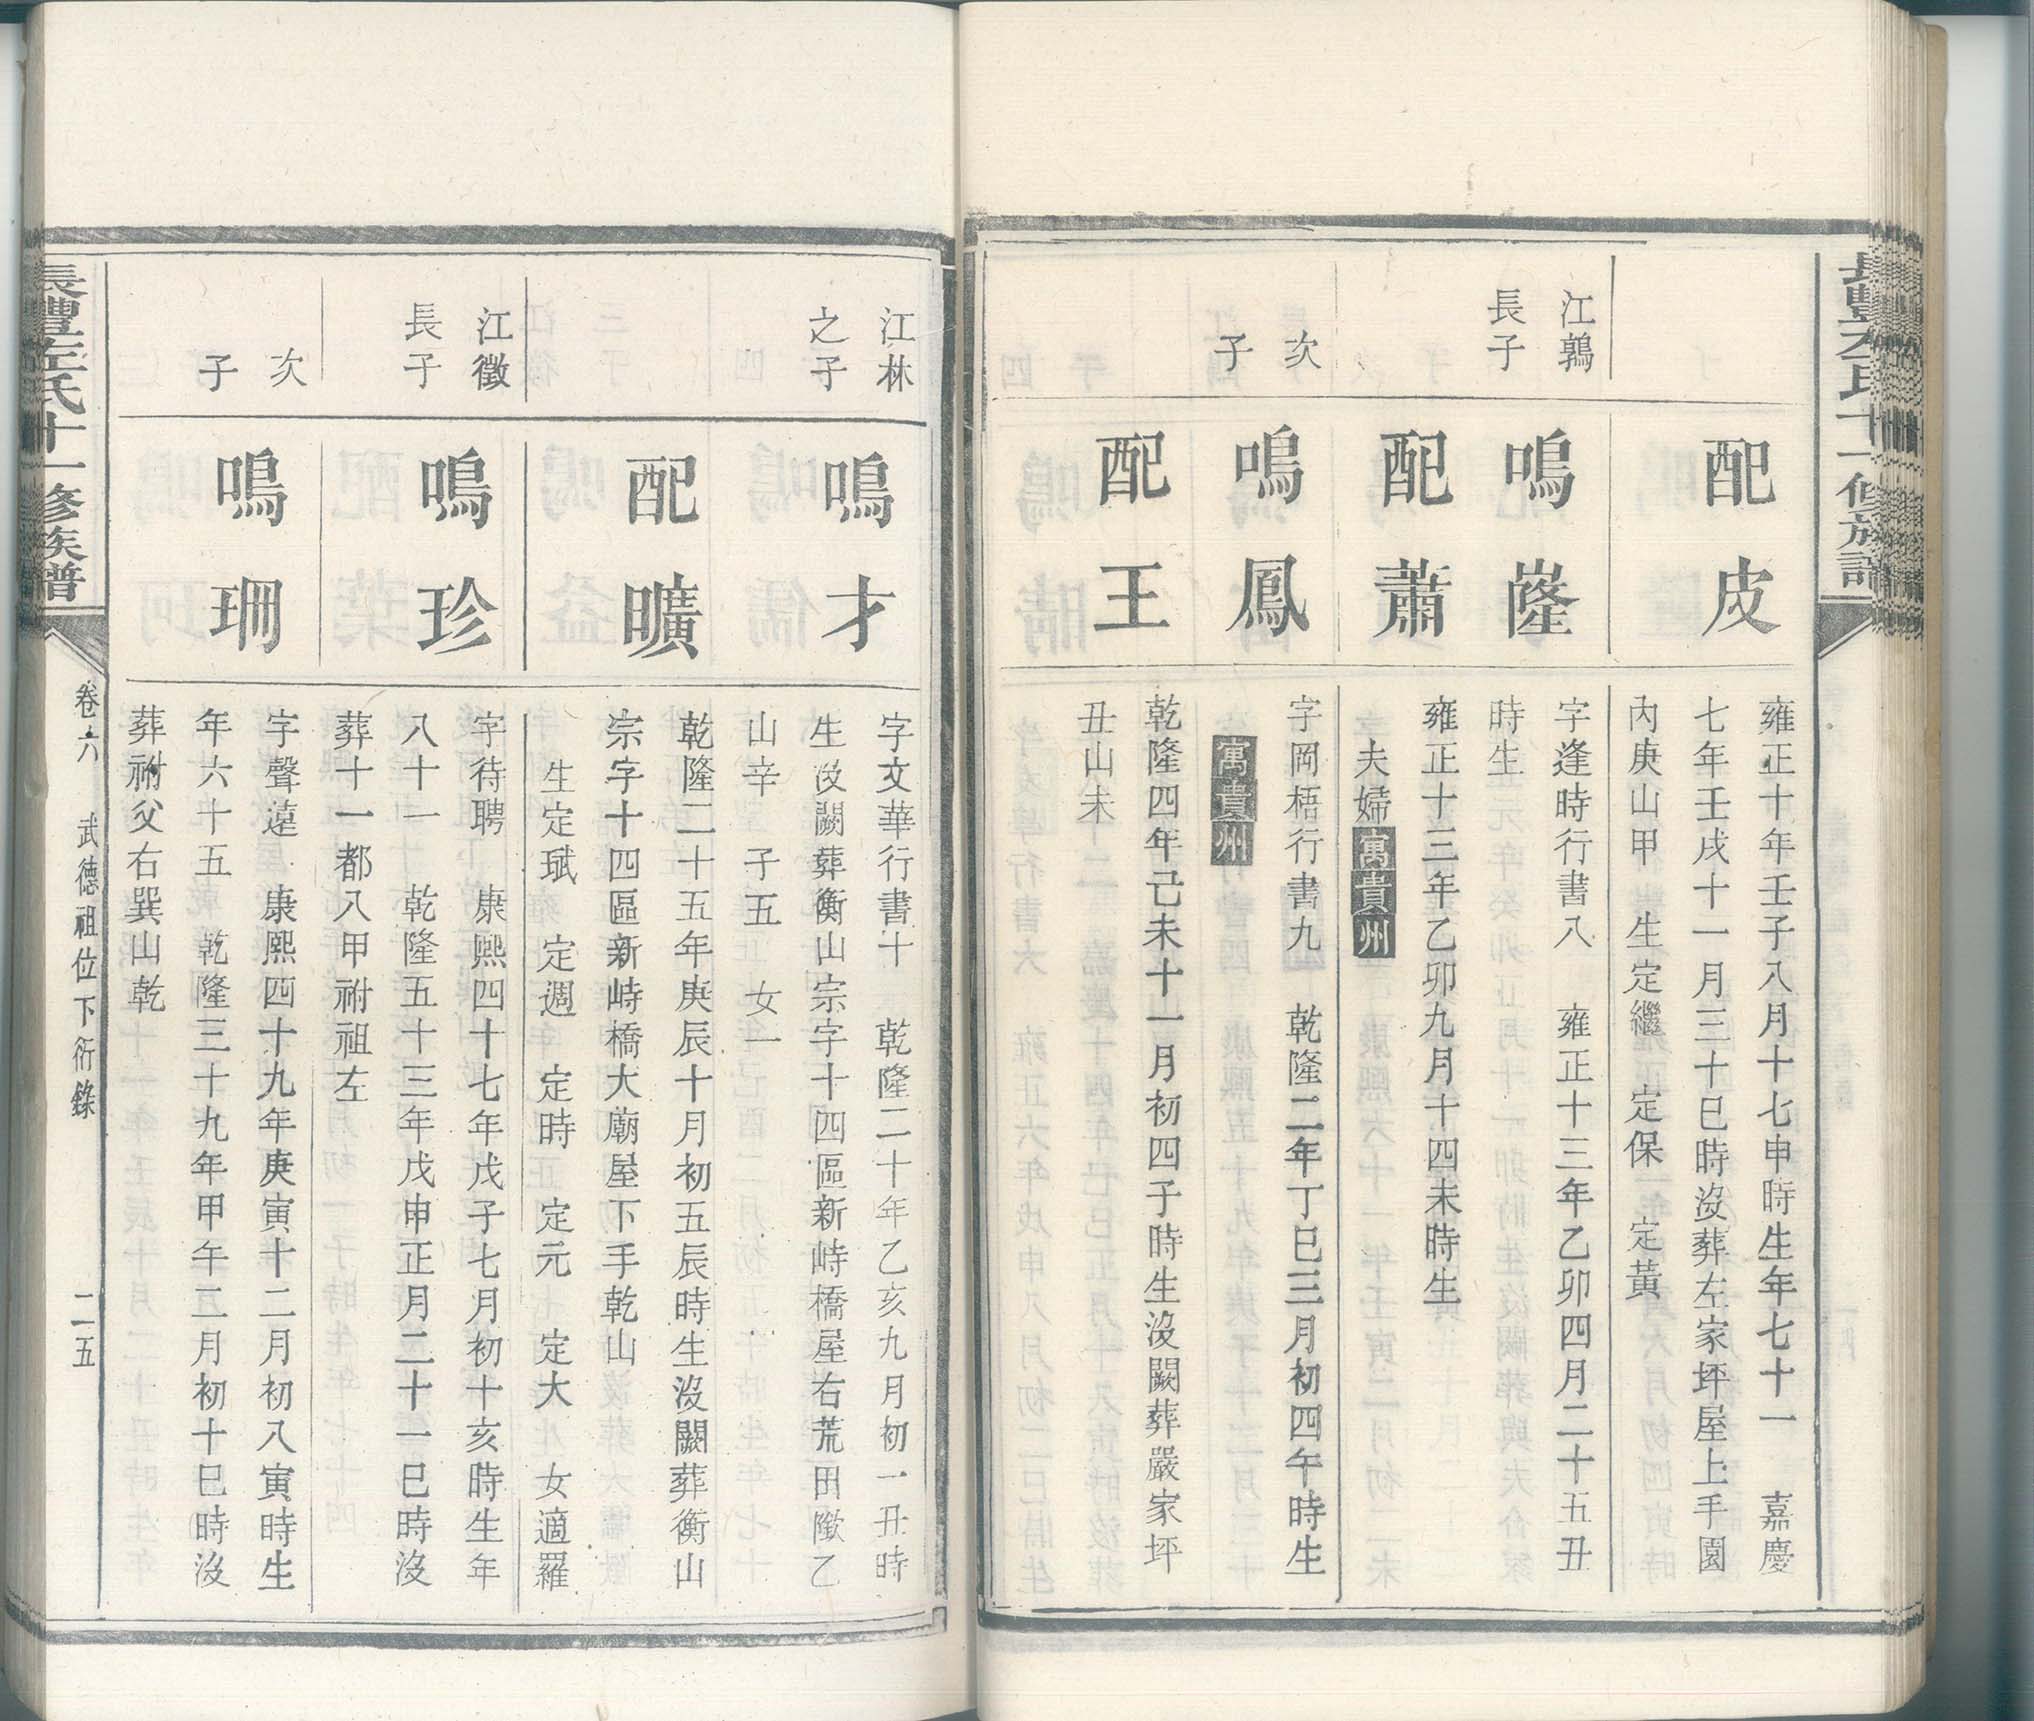 長豐左氏十一修族譜
配皮
雍正十年壬子八月十七申時生年七十一　嘉慶
七年壬戌十一月三十巳時沒葬左家坪屋上手園
內庚山甲　生定繼　定保　定黃
江鶉
長子
鳴嶐
字逢時行書八　雍正十三年乙卯四月二十五丑
時生
配蕭
雍正十三年乙卯九月十四未時生
夫婦寓貴州
次
子
鳴鳳
字岡梧行書九　乾隆二年丁巳三月初四午時生
寓貴州
配王
乾隆四年己未十一月初四子時生沒闕葬嚴家坪
丑山未
江林
之子
鳴才
字文華行書十　乾隆二十年乙亥九月初一丑時
生沒闕葬衡山宗字十四區新峙橋屋右荒田墘乙
山辛　子五　女一
配曠
乾隆二十五年庚辰十月初五辰時生沒闕葬衡山
宗字十四區新峙橋大廟屋下手乾山
生定珷　定週　定時　定元　定大　女適羅
江徵
長子
鳴珍
字待聘　康熙四十七年戊子七月初十亥時生年
八十一　乾隆五十三年戊申正月二十一巳時沒
葬十一都八甲祔祖左
次
子
鳴珊
字聲遠　康熙四十九年庚寅十二月初八寅時生
年六十五　乾隆三十九年甲午二月初十巳時沒
葬祔父右巽山乾
長豐左氏十一修族譜
卷六　武德祖位下衍錄　二五